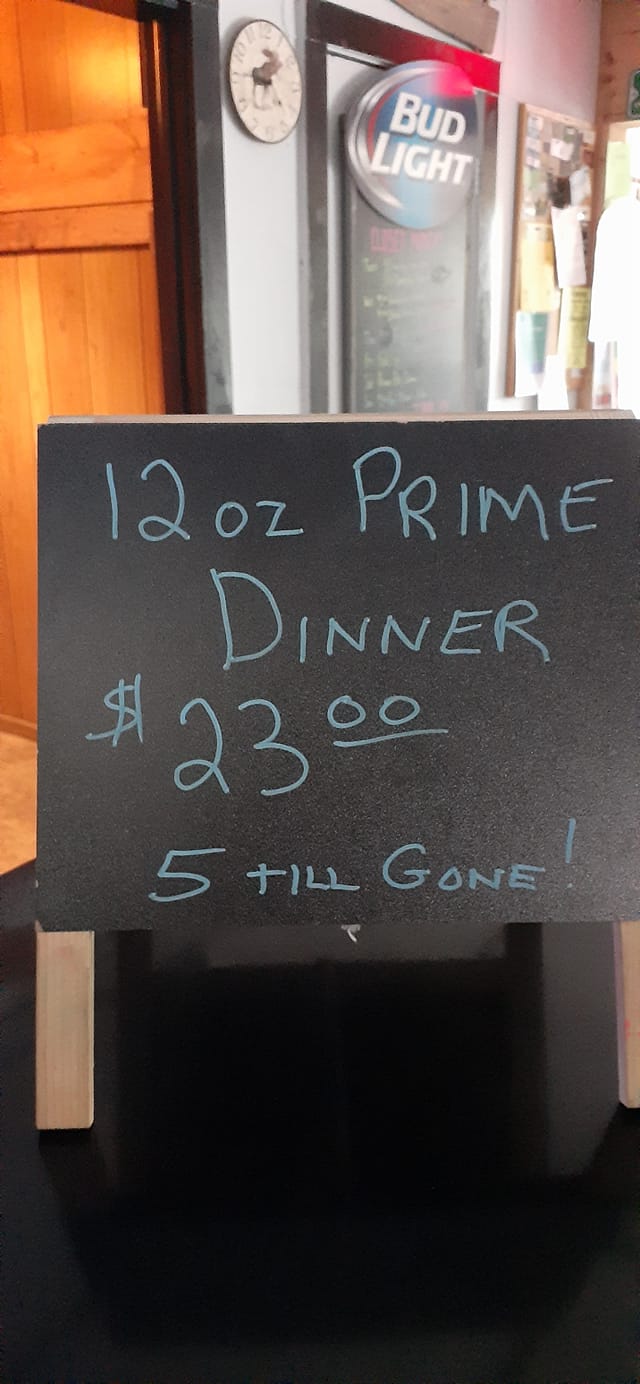 BUD
LIGHT
12 oz PRIME
DINNER
$ 23 00
5 TILL GONE!